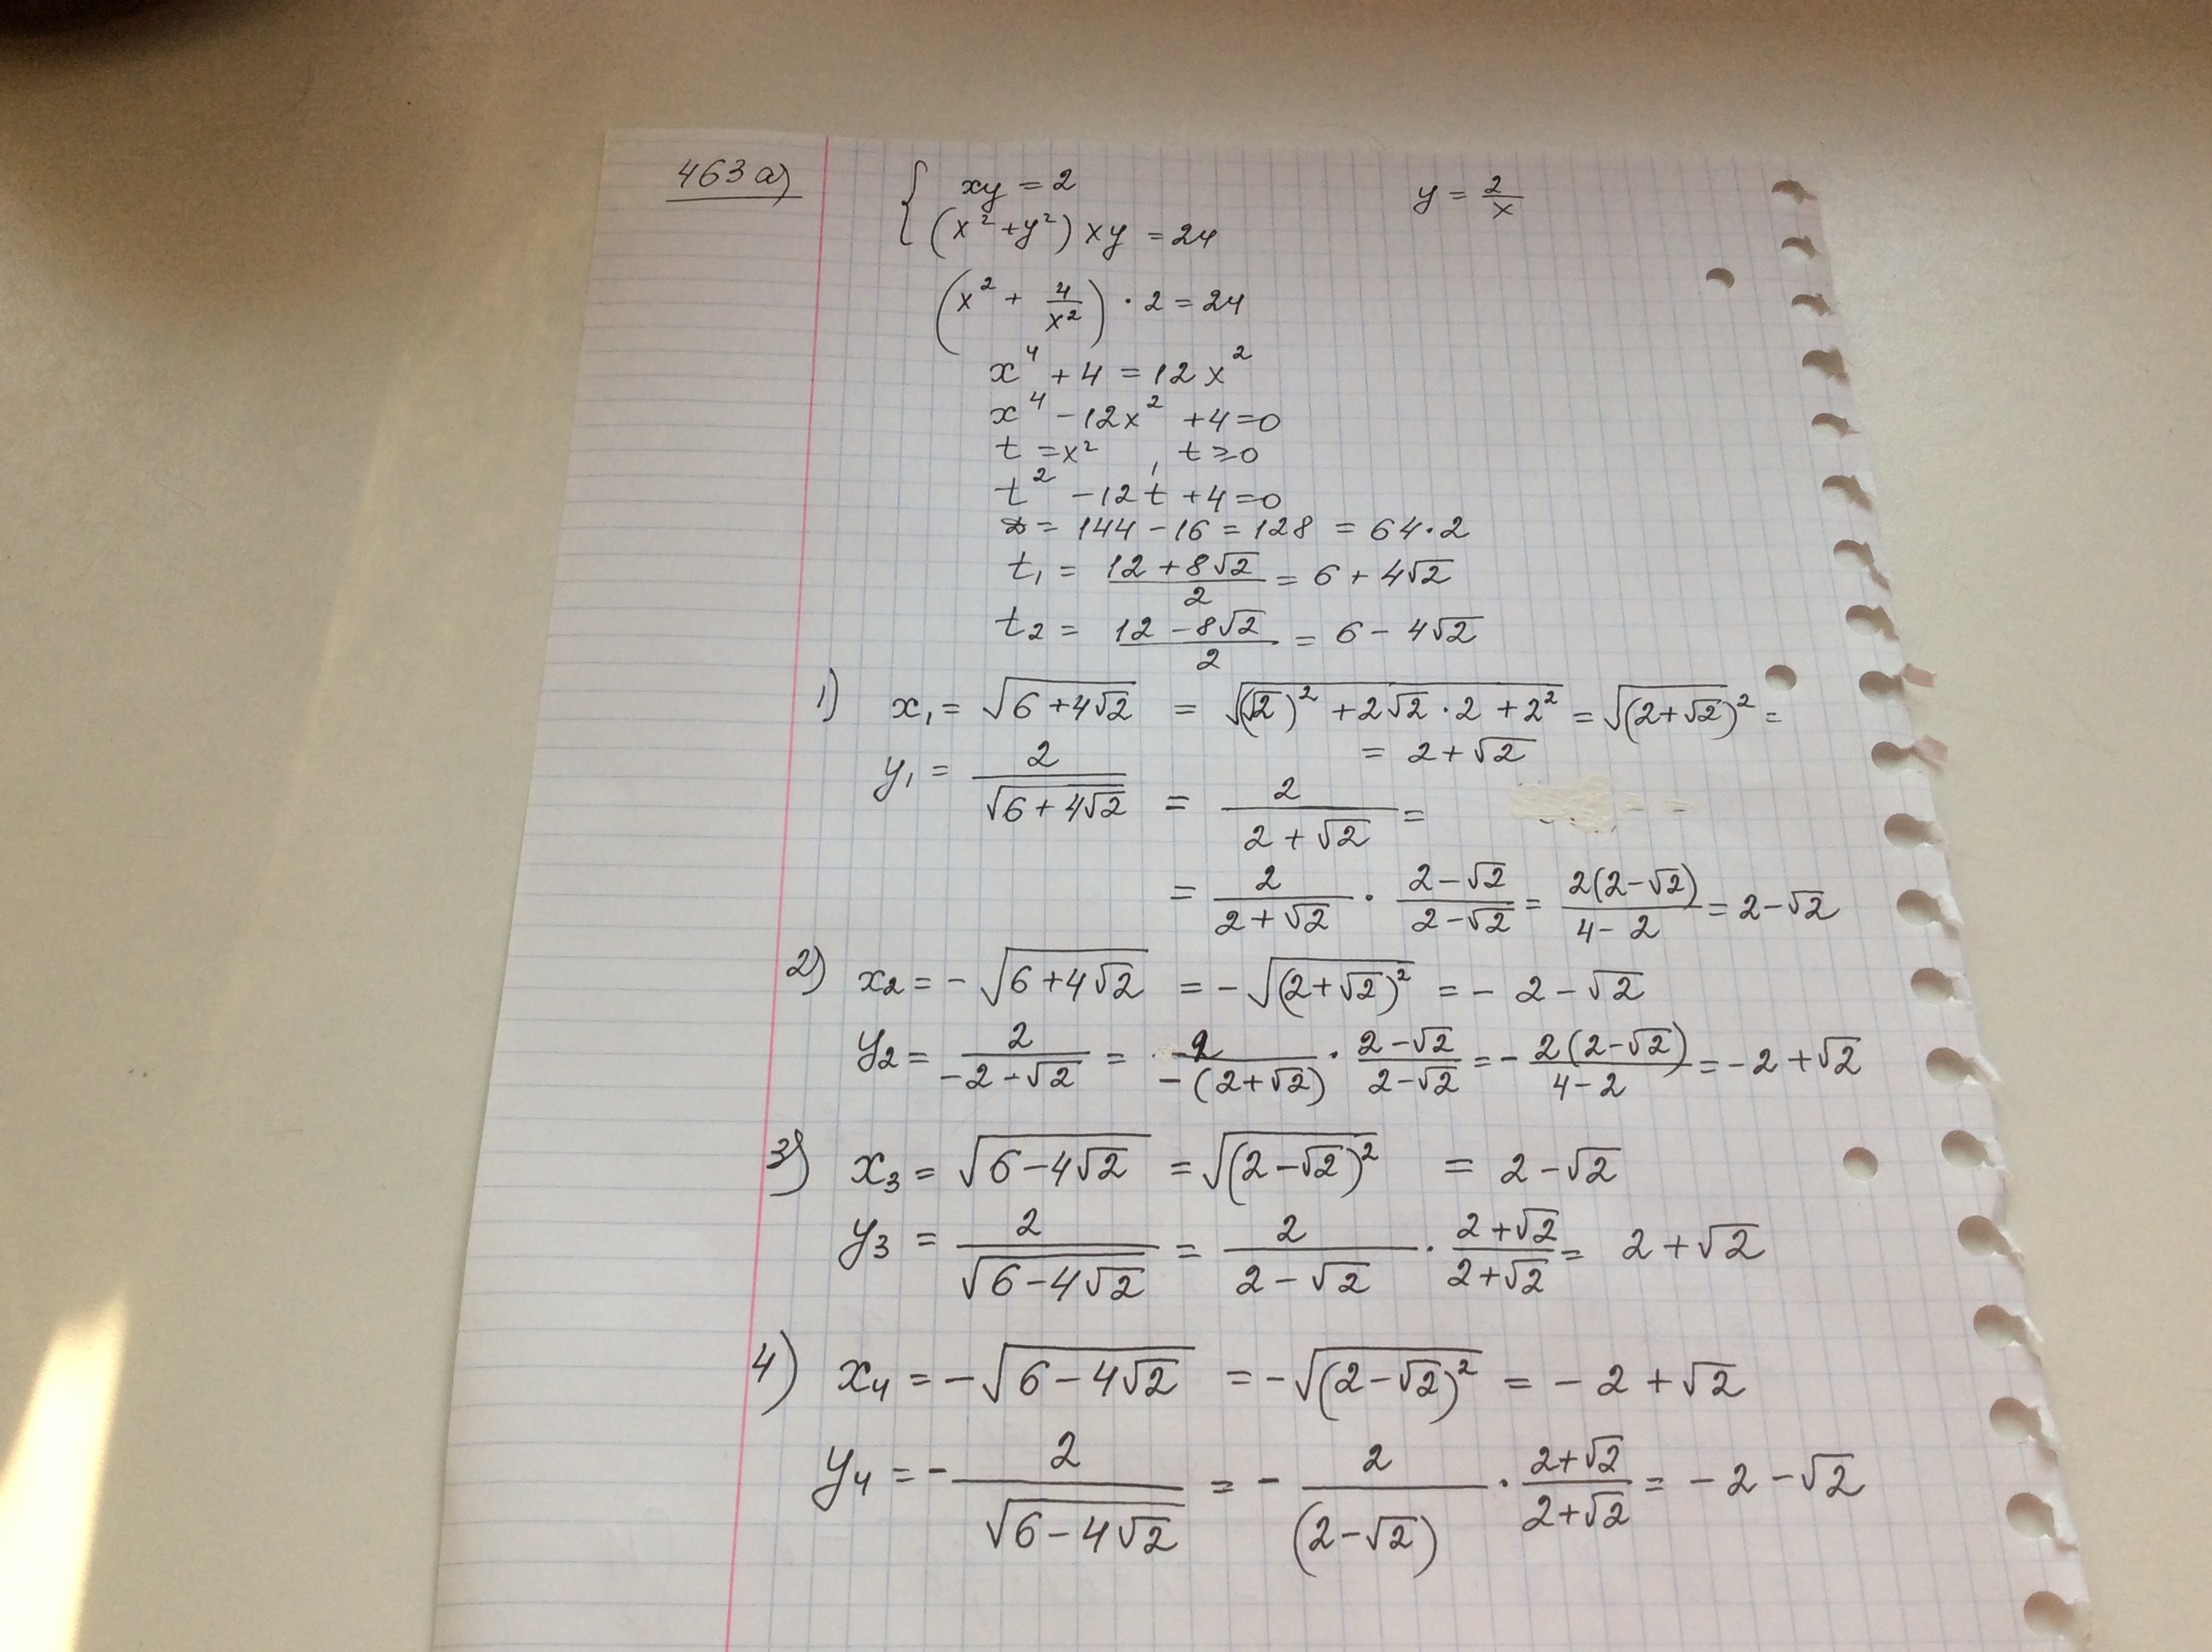 463 а)
{ xy = 2
(x² + y²) xy = 24
y = 2/x
(x² + 4/x²) · 2 = 24
x⁴ + 4 = 12x²
x⁴ - 12x² + 4 = 0
t = x², t ≥ 0
t² - 12t + 4 = 0
D = 144 - 16 = 128 = 64·2
t₁ = (12 + 8√2)/2 = 6 + 4√2
t₂ = (12 - 8√2)/2 = 6 - 4√2
1) x₁ = √(6 + 4√2) = √((√2)² + 2√2 · 2 + 2²) = √((2 + √2)²) =
= 2 + √2
y₁ = 2/√(6 + 4√2) = 2/(2 + √2) =
= 2/(2 + √2) · (2 - √2)/(2 - √2) = 2(2 - √2)/(4 - 2) = 2 - √2
2) x₂ = - √(6 + 4√2) = - √((2 + √2)²) = - 2 - √2
y₂ = 2/(-2 - √2) = 2/(-(2 + √2)) · (2 - √2)/(2 - √2) = - 2(2 - √2)/(4 - 2) = - 2 + √2
3) x₃ = √(6 - 4√2) = √((2 - √2)²) = 2 - √2
y₃ = 2/√(6 - 4√2) = 2/(2 - √2) · (2 + √2)/(2 + √2) = 2 + √2
4) x₄ = - √(6 - 4√2) = - √((2 - √2)²) = - 2 + √2
y₄ = - 2/√(6 - 4√2) = - 2/(2 - √2) · (2 + √2)/(2 + √2) = - 2 - √2